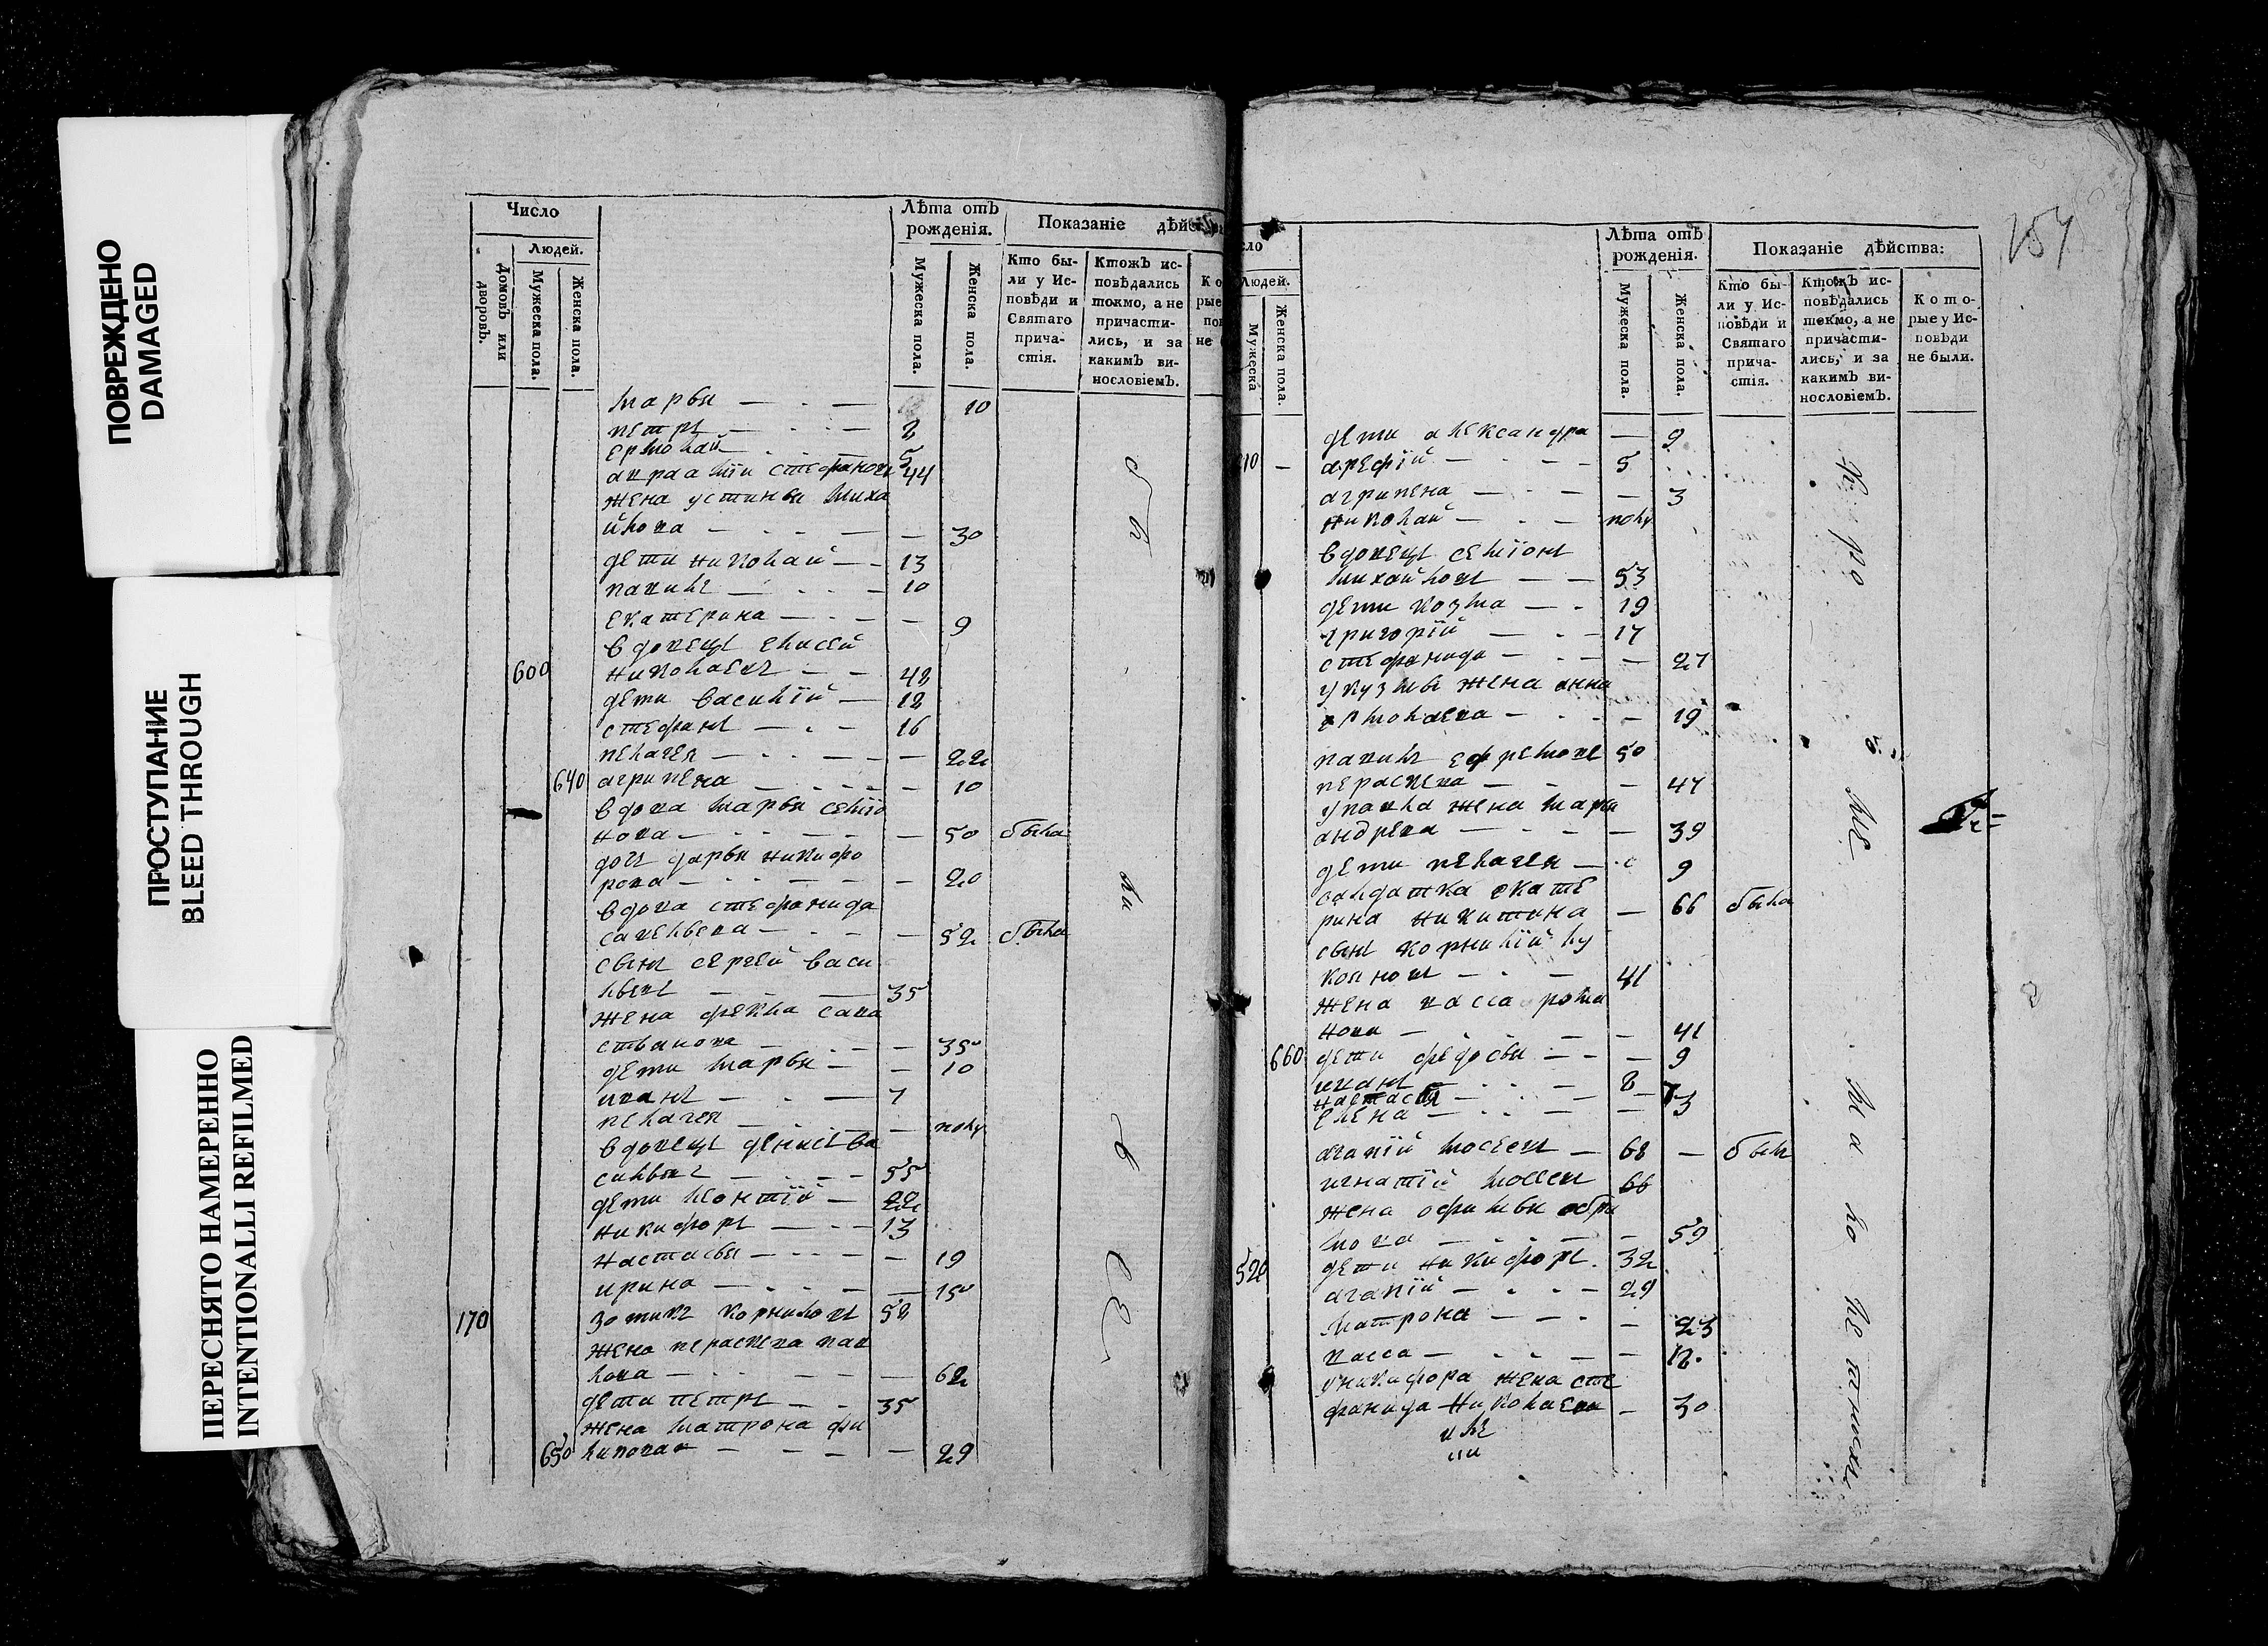 ПОВРЕЖДЕНО
DAMAGED
ПРОСТУПАНИЕ
BLEED THROUGH
ПЕРЕСНЯТО НАМЕРЕННО
INTENTIONALLI REFILMED
Число
Людей.
Домовъ или дворовъ.
Мужеска пола.
Женска пола.
Лѣта отъ рожденія.
Мужеска пола.
Женска пола.
Показаніе дѣйс
Кто бы-
ли у Ис-
повѣди и
Святаго
прича-
стія.
Ктожъ ис-
повѣдались
токмо, а не
причасти-
лись, и за
какимъ ви-
нословіемъ.
марья — 10
петръ — 2
ермолай — 5
авраамїй стефановъ 44
жена устинья миха
йлова — 30
дети николай — 13
павилъ — 10
екатерина — 9
вдовецъ елисей
600 николаевъ — 42
дети василїй — 12
стефанъ — 16
пелагея — 22
640 агрипена — 10
вдова марья семїо
нова — 50 была
дочь дарья никифо
рова — 20
вдова стефанида
савельева — 52 была
сынъ сергей васи
львъ — 35
жена фекла сава
стьянова — 35
дети марья — 10
иванъ — 7
пелагея — полу
вдовецъ денисъ ва
сильвъ — 55
дети леонтїй — 22
никифоръ — 13
настасья — 19
ирина — 15
170 зотикъ корниловъ 52
жена пераскева пав
лова — 62
дети петръ — 35
жена матрона фи
650 липова — 29
154
сло
Людей.
Мужеска
Женска пола.
Лѣта отъ рожденія.
Мужеска пола.
Женска пола.
Показаніе дѣйства:
Кто бы-
ли у Ис-
повѣди и
Святаго
прича-
стія.
Ктожъ ис-
повѣдались
токмо, а не
причасти-
лись, и за
какимъ ви-
нословіемъ.
Кото-
рые у Ис-
повѣди
не были.
дети александра — 9
арефїй — 5
агрипена — 3
николай — полу
вдовецъ семїонъ
михайловъ — 53
дети козма — 19
григорїй — 17
стефанида — 27
у кузмы жена анна
ермолаева — 19
павилъ ефремовъ 50
пераскева — 47
у павла жена марья
андрева — 39
дети пелагея — 9
салдатка екате
рина никитина — 66 была
сынъ корнилїй лу
коновъ — 41
жена васса рома
нова — 41
660 дети федосья — 9
иванъ — 2
настасья — 7
елена — 3
агапїй мосеевъ — 68 — былъ
игнатїй мосеев 66
жена офимья
мова — 59
520 дети никифоръ 32
агапїй — 29
матрона — 23
васса — 12
у никифора жена сте
фанида николаева — 30